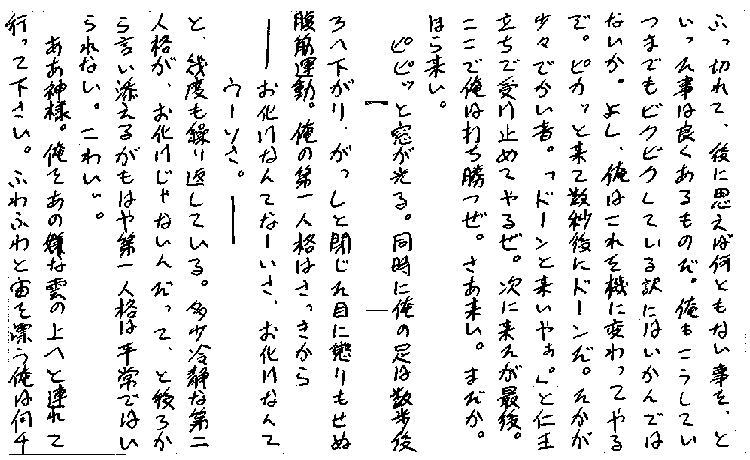 ふっ切れて、後に思えば何ともない事を、と
いった事は良くあるものだ。俺もこうしてい
つまでもビクビクしている訳にはいかんでは
ないか。よし、俺はこれを機に変わってやる
ぞ。ピカッと来て数秒後にドーンだ。たかが
少々でかい音。「ドーンと来いやぁ。」と仁王
立ちで受け止めてやるぜ。次に来たが最後。
ここで俺は打ち勝つぜ。さあ来い。まだか。
ほら来い。
ピピッと窓が光る。同時に俺の足は数歩後
ろへ下がり、がっしと閉じた目に懲りもせぬ
腹筋運動。俺の第一人格はさっきから
――お化けなんてなーいさ、お化けなんて
うーそさ。――
と、幾度も繰り返している。多少冷静な第二
人格が、お化けじゃないんだって、と後ろか
ら言い添えるがもはや第一人格は平常ではい
られない。こわいぃ。
ああ神様。俺をあの様な雲の上へと連れて
行って下さい。ふわふわと宙を漂う俺は何千